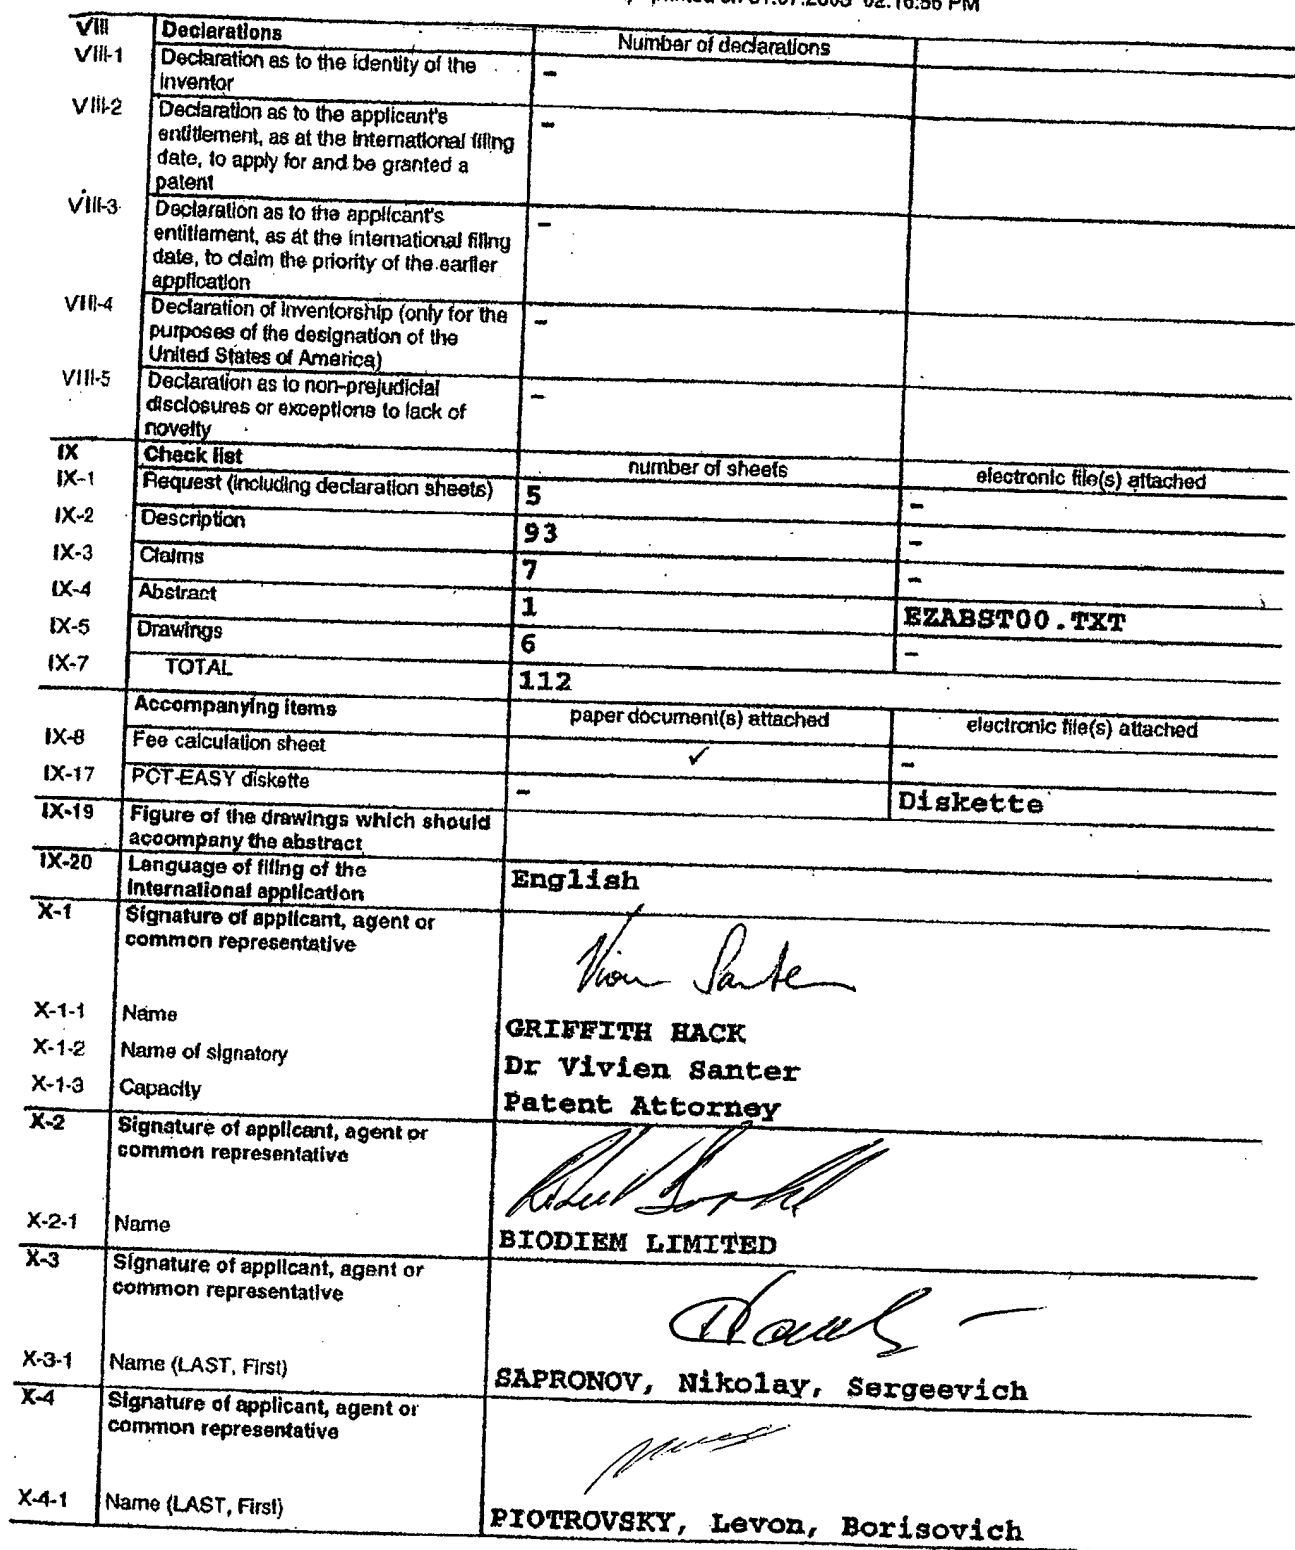 printed on 31.07.2003 02:16:56 PM
VIII Declarations Number of declarations
VIII-1 Declaration as to the identity of the -
inventor
VIII-2 Declaration as to the applicant's -
entitlement, as at the international filing
date, to apply for and be granted a
patent
VIII-3 Declaration as to the applicant's -
entitlement, as at the international filing
date, to claim the priority of the earlier
application
VIII-4 Declaration of inventorship (only for the -
purposes of the designation of the
United States of America)
VIII-5 Declaration as to non-prejudicial -
disclosures or exceptions to lack of
novelty
IX Check list number of sheets electronic file(s) attached
IX-1 Request (including declaration sheets) 5 -
IX-2 Description 93 -
IX-3 Claims 7 -
IX-4 Abstract 1 EZABST00.TXT
IX-5 Drawings 6 -
IX-7 TOTAL 112
Accompanying items paper document(s) attached electronic file(s) attached
IX-8 Fee calculation sheet ✓ -
IX-17 PCT-EASY diskette - Diskette
IX-19 Figure of the drawings which should
accompany the abstract
IX-20 Language of filing of the English
international application
X-1 Signature of applicant, agent or
common representative
Vivien Santer
X-1-1 Name GRIFFITH HACK
X-1-2 Name of signatory Dr Vivien Santer
X-1-3 Capacity Patent Attorney
X-2 Signature of applicant, agent or
common representative
X-2-1 Name BIODIEM LIMITED
X-3 Signature of applicant, agent or
common representative
X-3-1 Name (LAST, First) SAPRONOV, Nikolay, Sergeevich
X-4 Signature of applicant, agent or
common representative
X-4-1 Name (LAST, First) PIOTROVSKY, Levon, Borisovich